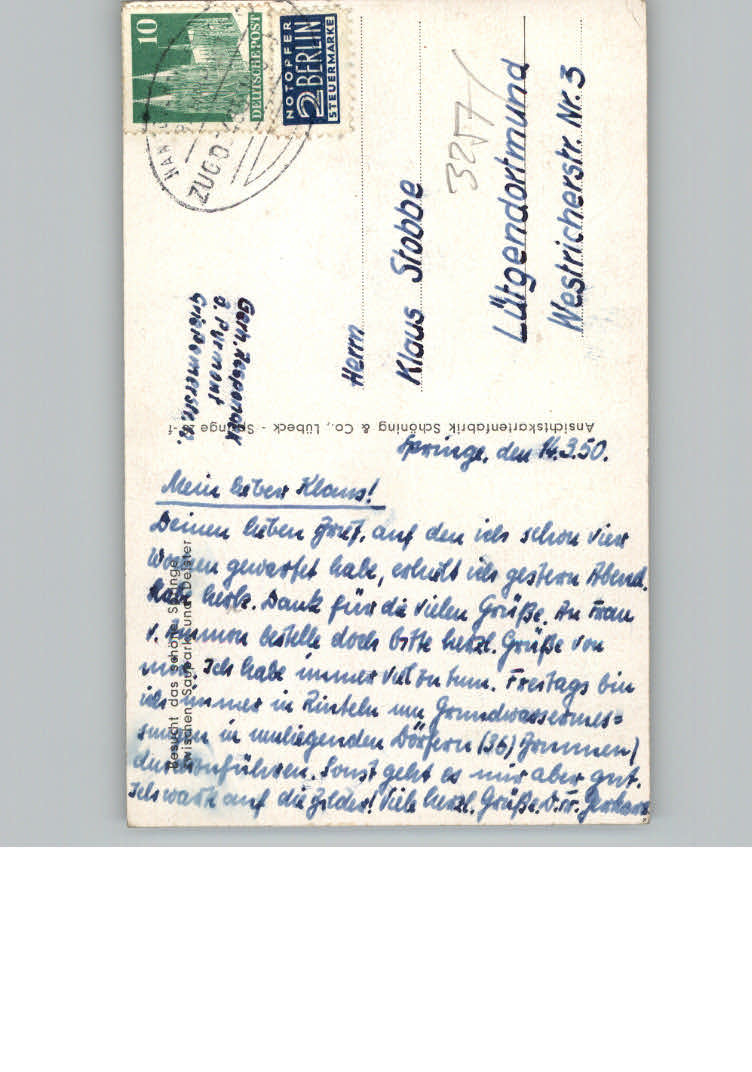 10
DEUTSCHE POST
NOTOPFER
2 BERLIN
STEUERMARKE
ZUG 0
3257
Herrn
Klaus Stobbe
Lütgendortmund
Westricherstr. Nr. 3
Gerh.
B. Pyrmont
Ansichtskartenfabrik Schöning & Co., Lübeck - Springe
Besucht das schöne Springe
zwischen Saupark und Deister
Springe, den 14.3.50.
Mein lieber Klaus!
Deinen lieben Brief, auf den ich schon vier
Wochen gewartet habe, erhielt ich gestern Abend.
Habe herzl. Dank für die vielen Grüße. An Frau
v. Ammon bestelle doch bitte herzl. Grüße von
mir. Ich habe immer viel zu tun. Freitags bin
ich immer in Rinteln um Grundwassermes=
sungen in umliegenden Dörfern (36) Brunnen)
durchzuführen. Sonst geht es mir aber gut.
Ich warte auf die Bilder! Viele herzl. Grüße. D. Fr. Gerhard